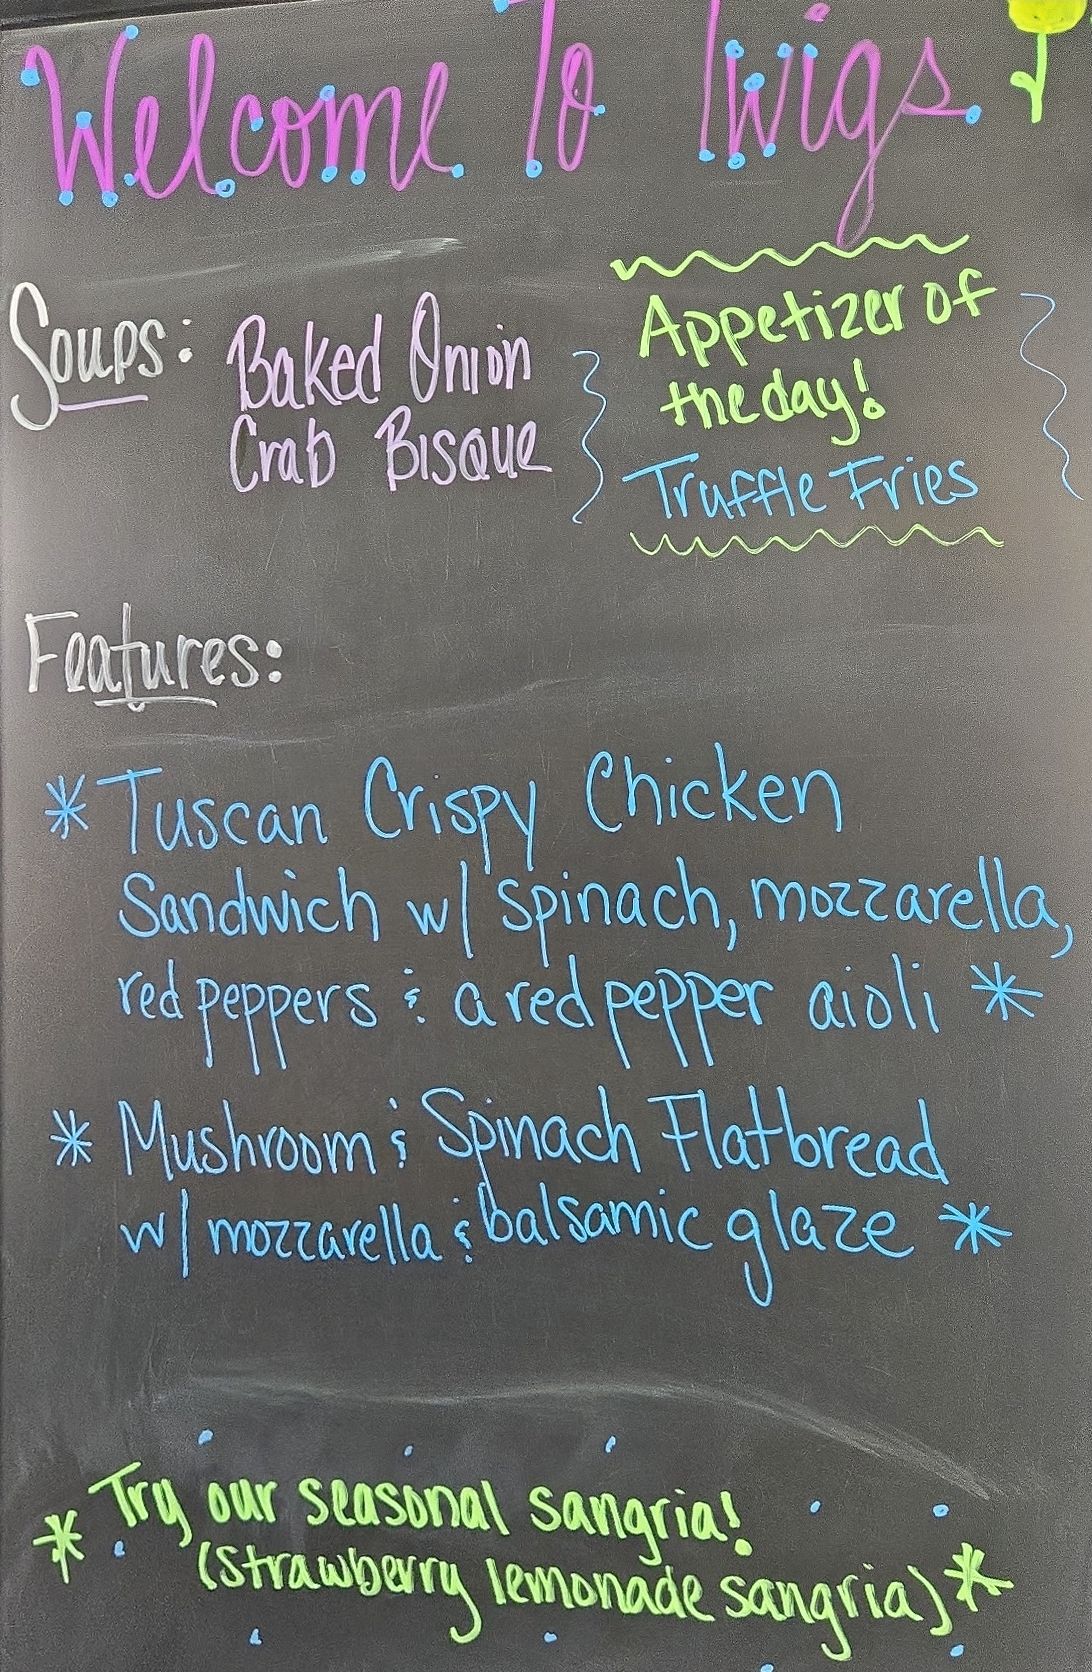 Welcome To Twigs
Soups: Baked Onion
Crab Bisque
Appetizer of
the day!
Truffle Fries
Features:
* Tuscan Crispy Chicken
Sandwich w/ spinach, mozzarella,
red peppers & a red pepper aioli *
* Mushroom & Spinach Flatbread
w/ mozzarella & balsamic glaze *
* Try our seasonal sangria!
(strawberry lemonade sangria) *